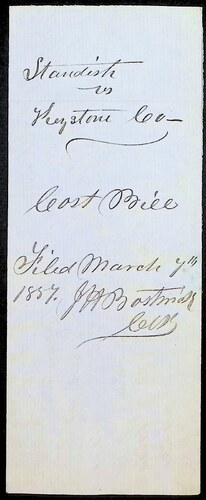 Standish
vs
Keystone Co
Cost Bill
Filed March 7th
1857. J H Bostwick
Clk